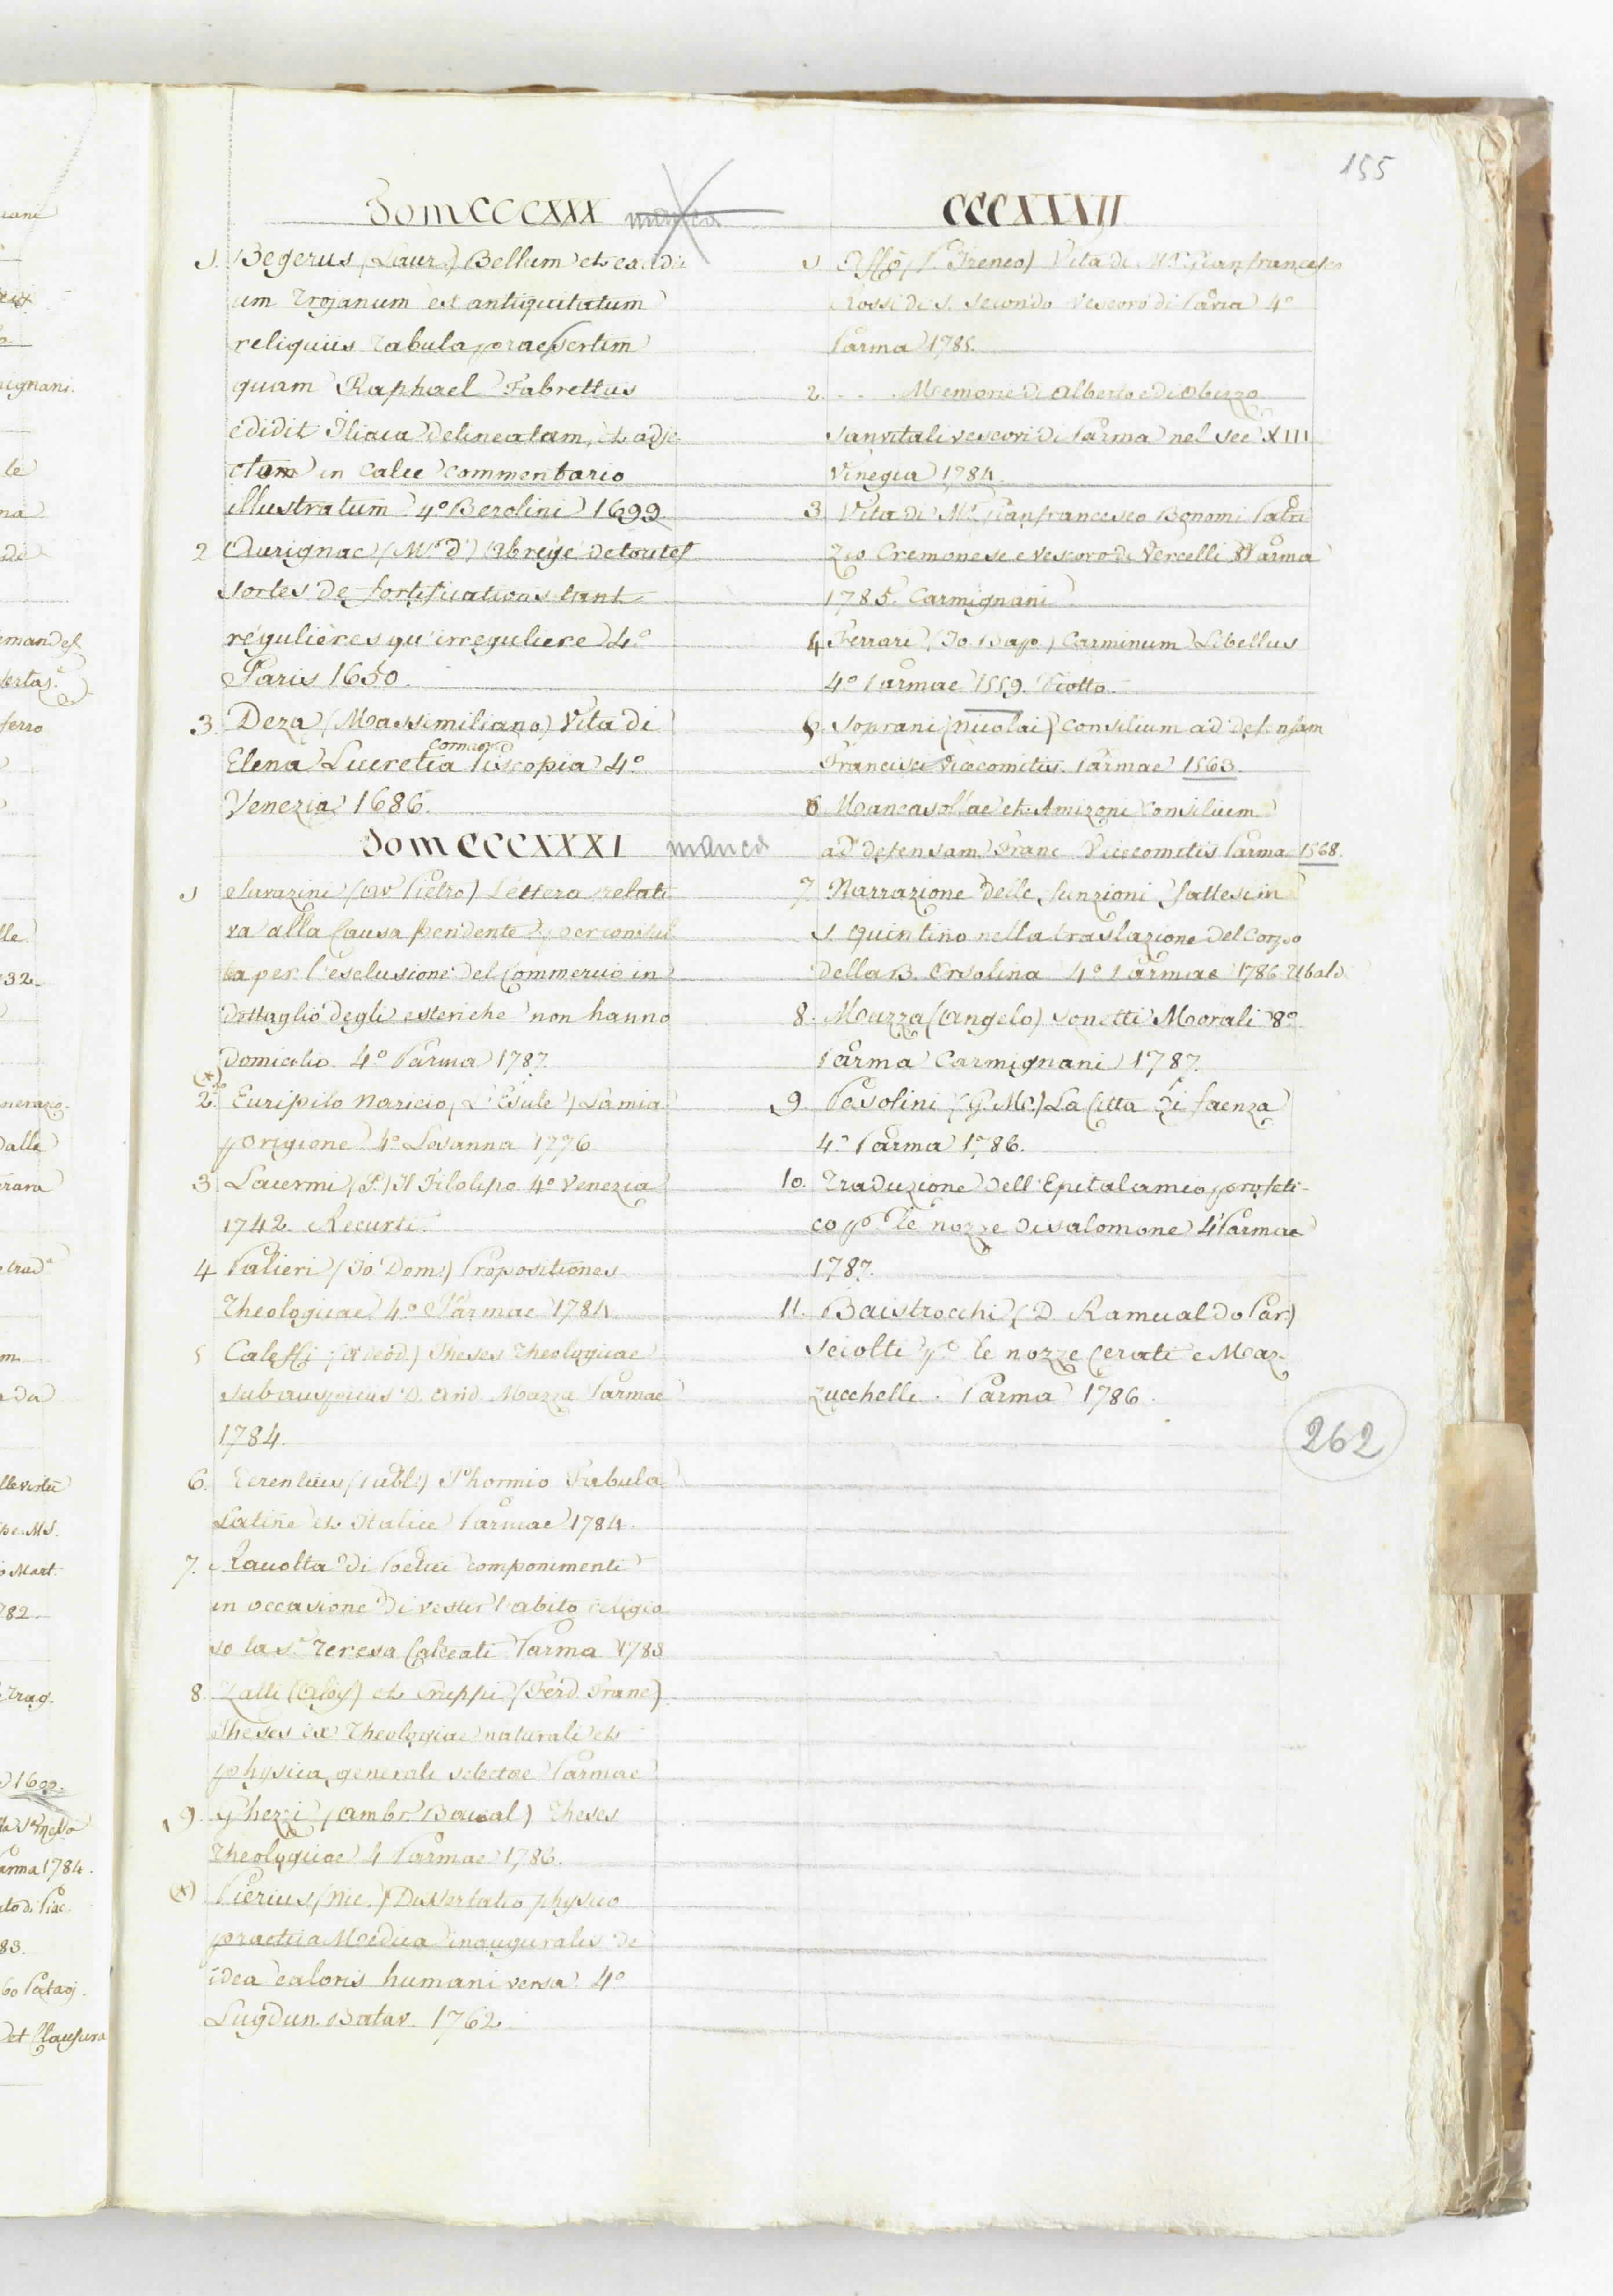 155
Tom CCCXXX manca
1. Begerus (Laur.) Bellum et excidi
um Trojanum ex antiquitatum
reliquiis Tabula praesertim
quam Raphael Fabrettus
edidit Iliaca delineatam, et adje
ctum in calce commentario
illustratum 4º Berolini 1699.
2 Aurignac (Mr. d') Abregé de toutes
sortes de fortifications tant
régulières qu'irreguliere 4º
Paris 1650.
3. Deza (Massimiliano) Vita di
Cornaro
Elena Lucretia Piscopia 4º
Venezia 1686.
Tom CCCXXXI manca
1 (av. Pietro) Lettera relati
va alla Causa pendente
ta per l'esclusione del Commercio in
dettaglio degli esteri che non hanno
Domicilio. 4º Parma 1787.
(*)
2. Euripilo Naricio (L'Esule) La mia
prigione 4º Losanna 1776
3 (P.) Il Filolipo 4º Venezia
1742. Recurti.
4 Palieri (Jo. Dom.) Propositiones
Theologicae 4º Parmae 1784.
5 Caleffi (Adeod.) Theses Theologicae
sub auspiciis D. And. Mazza Parmae
1784.
6. Terentius (Publ.) Phormio Fabula
Latine et Italice Parmae 1784.
7. Racolta di Poetici componimenti
in occasione di vestir l'abito religio
so la Sª. Teresa Calceati Parma 1783
8. Zalli (Aloy) et (Ferd. Franc)
Theses ex Theologia naturali et
physica generali selectae Parmae
9. Ghezzi (Ambr. ) Theses
Theologicae 4 Parmae 1786.
(*) Pierius (Nic.) Dissertatio physico
practica Medica inauguralis de
idea caloris humani versa 4º
Lugdun. Batav. 1762.
CCCXXXII
1 Affò (P. Ireneo) Vita di Mr. Gianfrancesco
Rossi de S. Secondo vescovo di Pavia 4º
Parma 1785.
2. - . . Memorie di Alberto e di Obizzo
Sanvitali vescovi di Parma nel sec XIII
Vinegia 1784.
3. Vita di Mr. Gianfrancesco Bonomi Patri
zio Cremonese e vescovo di Vercelli Parma
1785. Carmignani
4 Ferrari (Jo. Bapt.) Carminum Libellus
4º Parmae 1559. Viotto.
5. Soprani (Nicolai) Consilium ad defensam
Francisci Vicecomitis. Parmae 1563.
6 Mancasollae et Amizoni Consilium
ad defensam Franc Vicecomitis Parma 1568.
7. Narrazione delle funzioni fattesi in
S. Quintino nella traslazione del Corpo
della B. Orsolina 4º Parmae 1786 Ubald
8. Mazza (Angelo) Sonetti Morali 8º
Parma Carmignani 1787.
9. Pasolini (G. Mª.) La Citta di faenza
4º Parma 1786.
10. Traduzione dell'Epitalamio profeti-
co pº. le nozze di Salomone 4º Parmae
1787.
11. Baistrocchi (D. Ramualdo Par)
Sciolti pº. le nozze Cerati e Maz
zucchelli. Parma 1786.
262